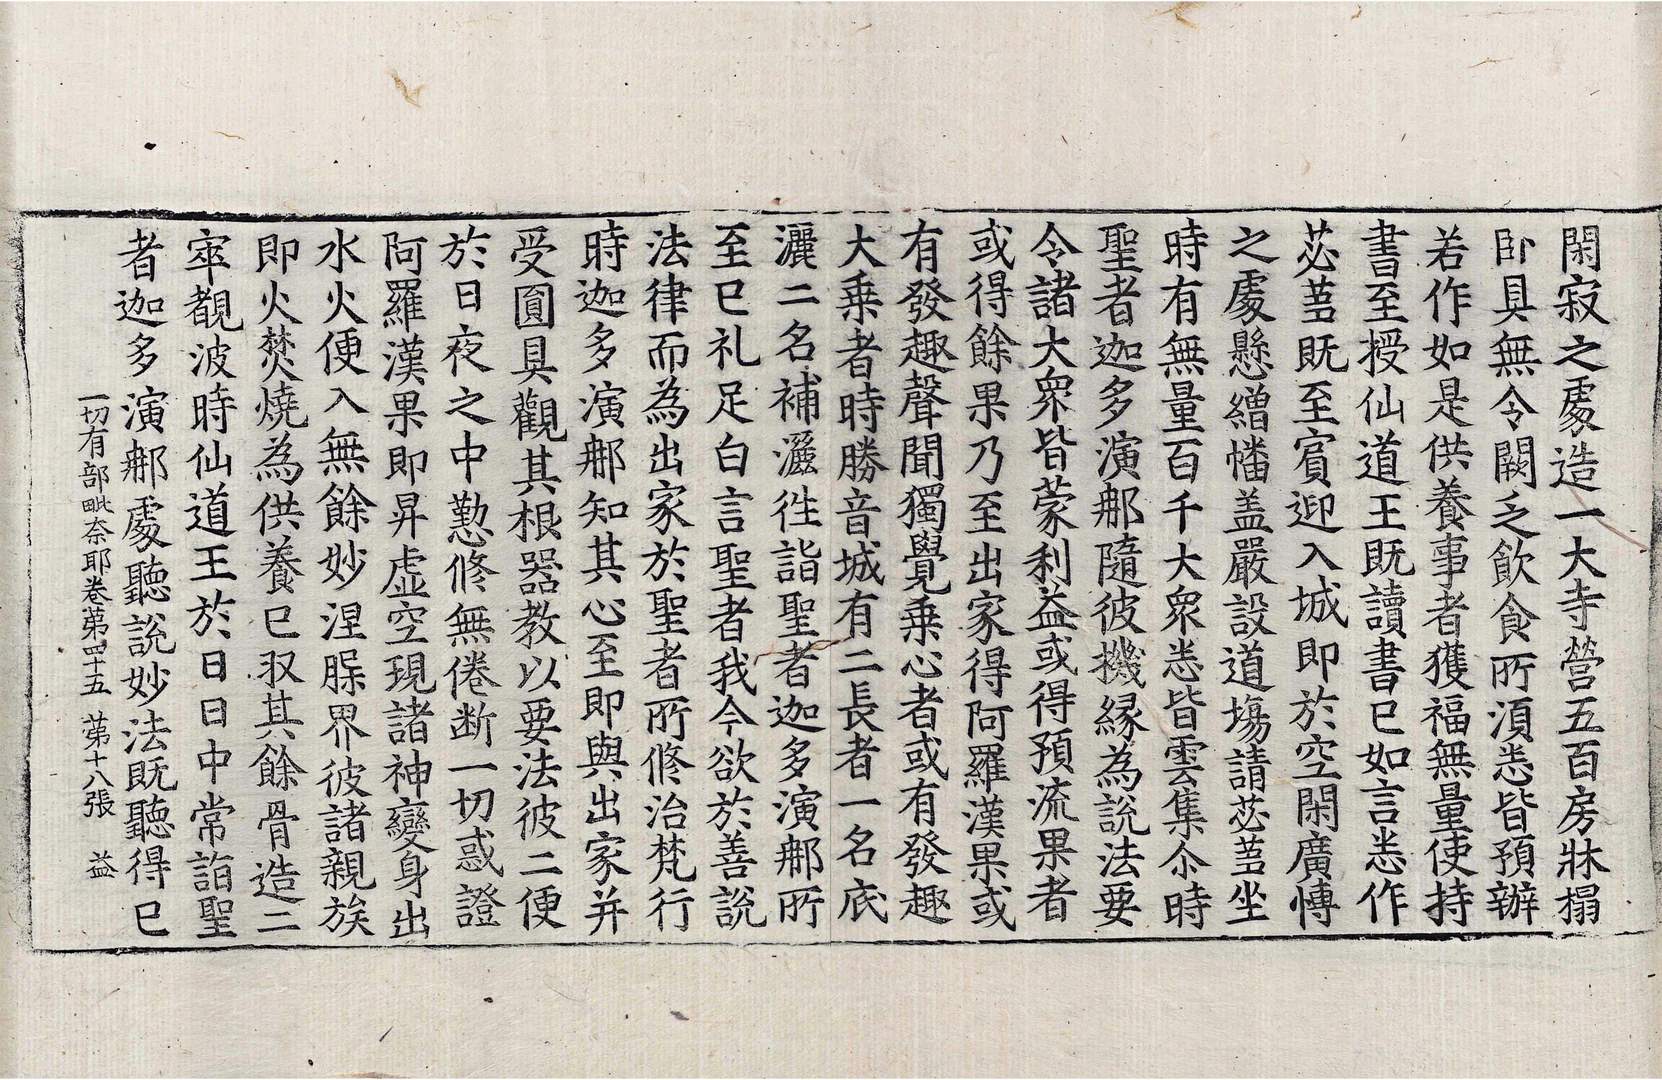 閑寂之處造一大寺營五百房牀榻
卧具無令闕乏飲食所湏悉皆預辦
若作如是供養事者獲福無量使持
書至授仙道王既讀書已如言悉作
苾芻既至賔迎入城即於空閑廣愽
之處懸繒幡盖嚴設道塲請苾芻坐
時有無量百千大衆悉皆雲集尒時
聖者迦多演那隨彼機縁為說法要
令諸大衆皆蒙利益或得預流果者
或得餘果乃至出家得阿羅漢果或
有發趣聲聞獨覺乗心者或有發趣
大乗者時勝音城有二長者一名底
灑二名補灑徃詣聖者迦多演那所
至已礼足白言聖者我今欲於善說
法律而為出家於聖者所俢治梵行
時迦多演那知其心至即與出家并
受圎具觀其根器教以要法彼二便
於日夜之中懃俢無倦断一切惑證
阿羅漢果即昇虚空現諸神變身出
水火便入無餘妙涅槃界彼諸親族
即火焚燒為供養已収其餘骨造二
窣覩波時仙道王於日日中常詣聖
者迦多演那處聽說妙法既聽得已
一切有部毗奈耶卷苐四十五 苐十八張 益